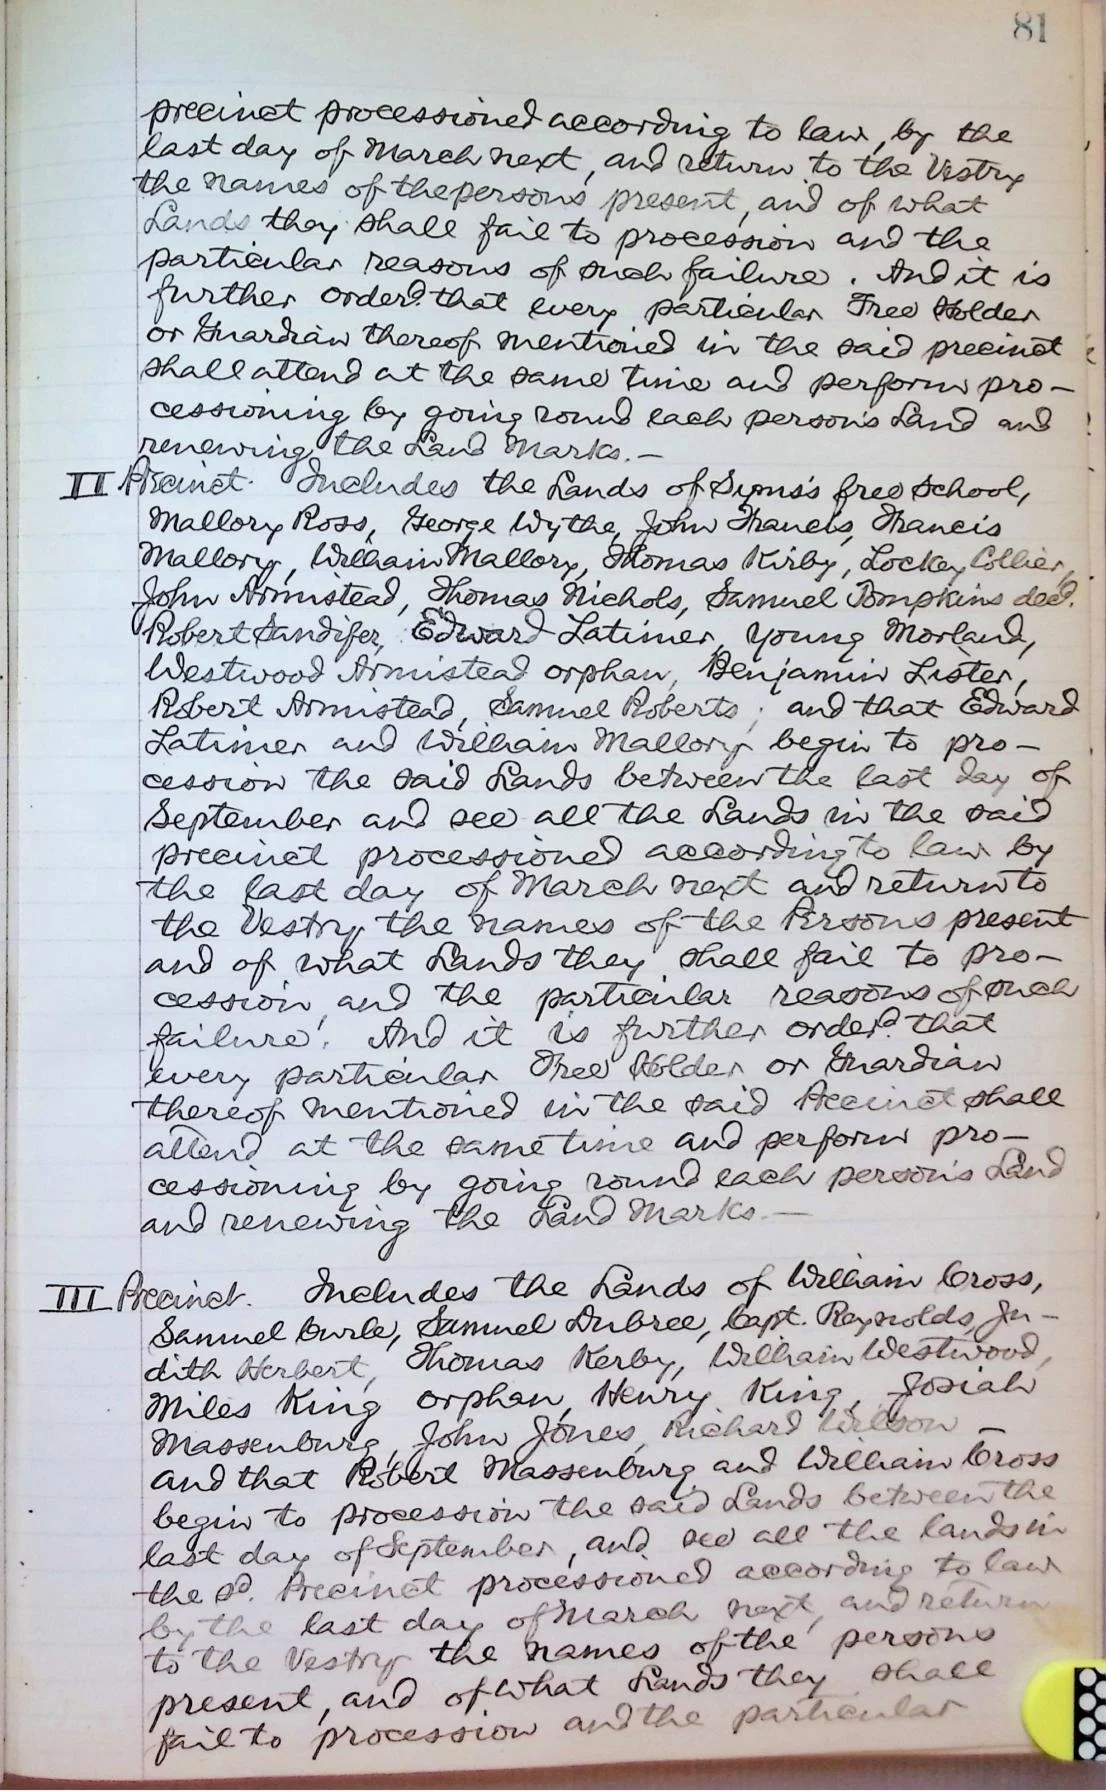 81
precinct processioned according to law, by the
last day of March next, and return to the Vestry
the names of the persons present, and of what
Lands they shall fail to procession and the
particular reasons of such failure. And it is
further order'd that every particular Free Holder
or Guardian thereof mentioned in the said precinct
shall attend at the same time and perform pro-
cessioning by going round each person's Land and
renewing the Land Marks.—
II Precinct. Includes the Lands of Syms's free School,
Mallory Ross, George Wythe, John Francis, Francis
Mallory, William Mallory, Thomas Kirby, Lockey Collier,
John Armistead, Thomas Nichols, Samuel Tompkins decd.
Robert Sandifer, Edward Latimer, Young Morland,
Westwood Armistead orphan, Benjamin Lister,
Robert Armistead, Samuel Roberts; and that Edward
Latimer and William Mallory begin to pro-
cession the said Lands between the last day of
September and see all the Lands in the said
precinct processioned according to law by
the last day of March next and return to
the Vestry the names of the Persons present
and of what Lands they shall fail to pro-
cession, and the particular reasons of such
failure. And it is further order'd that
every particular Free Holder or Guardian
thereof mentioned in the said Precinct shall
attend at the same time and perform pro-
cessioning by going round each person's Land
and renewing the Land Marks.—
III Precinct. Includes the Lands of William Cross,
Samuel Curle, Samuel Dubree, Capt. Reynolds, Ju-
dith Herbert, Thomas Kerby, William Westwood,
Miles King orphan, Henry King, Josiah
Massenburg, John Jones, Richard Wilson —
and that Robert Massenburg and William Cross
begin to procession the said Lands between the
last day of September, and see all the lands in
the sd. Precinct processioned according to law
by the last day of March next, and return
to the Vestry the names of the persons
present, and of what Lands they shall
fail to procession and the particular